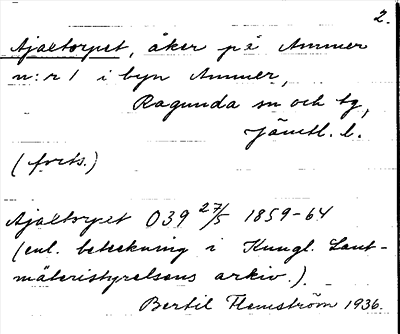 2.
Ajaxtorpet, åker på Ammer
n:r 1 i byn Ammer,
Ragunda sn och tg,
Jämtl. l.
(forts.)
Ajaxtorpet O39 27/5 1859-64
(enl. beteckning i Kungl. Lant-
mäteristyrelsens arkiv.)
Bertil Flemström 1936.